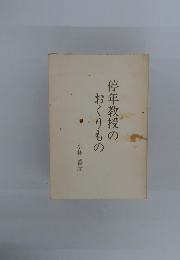 停年教授の
おくりもの
小林